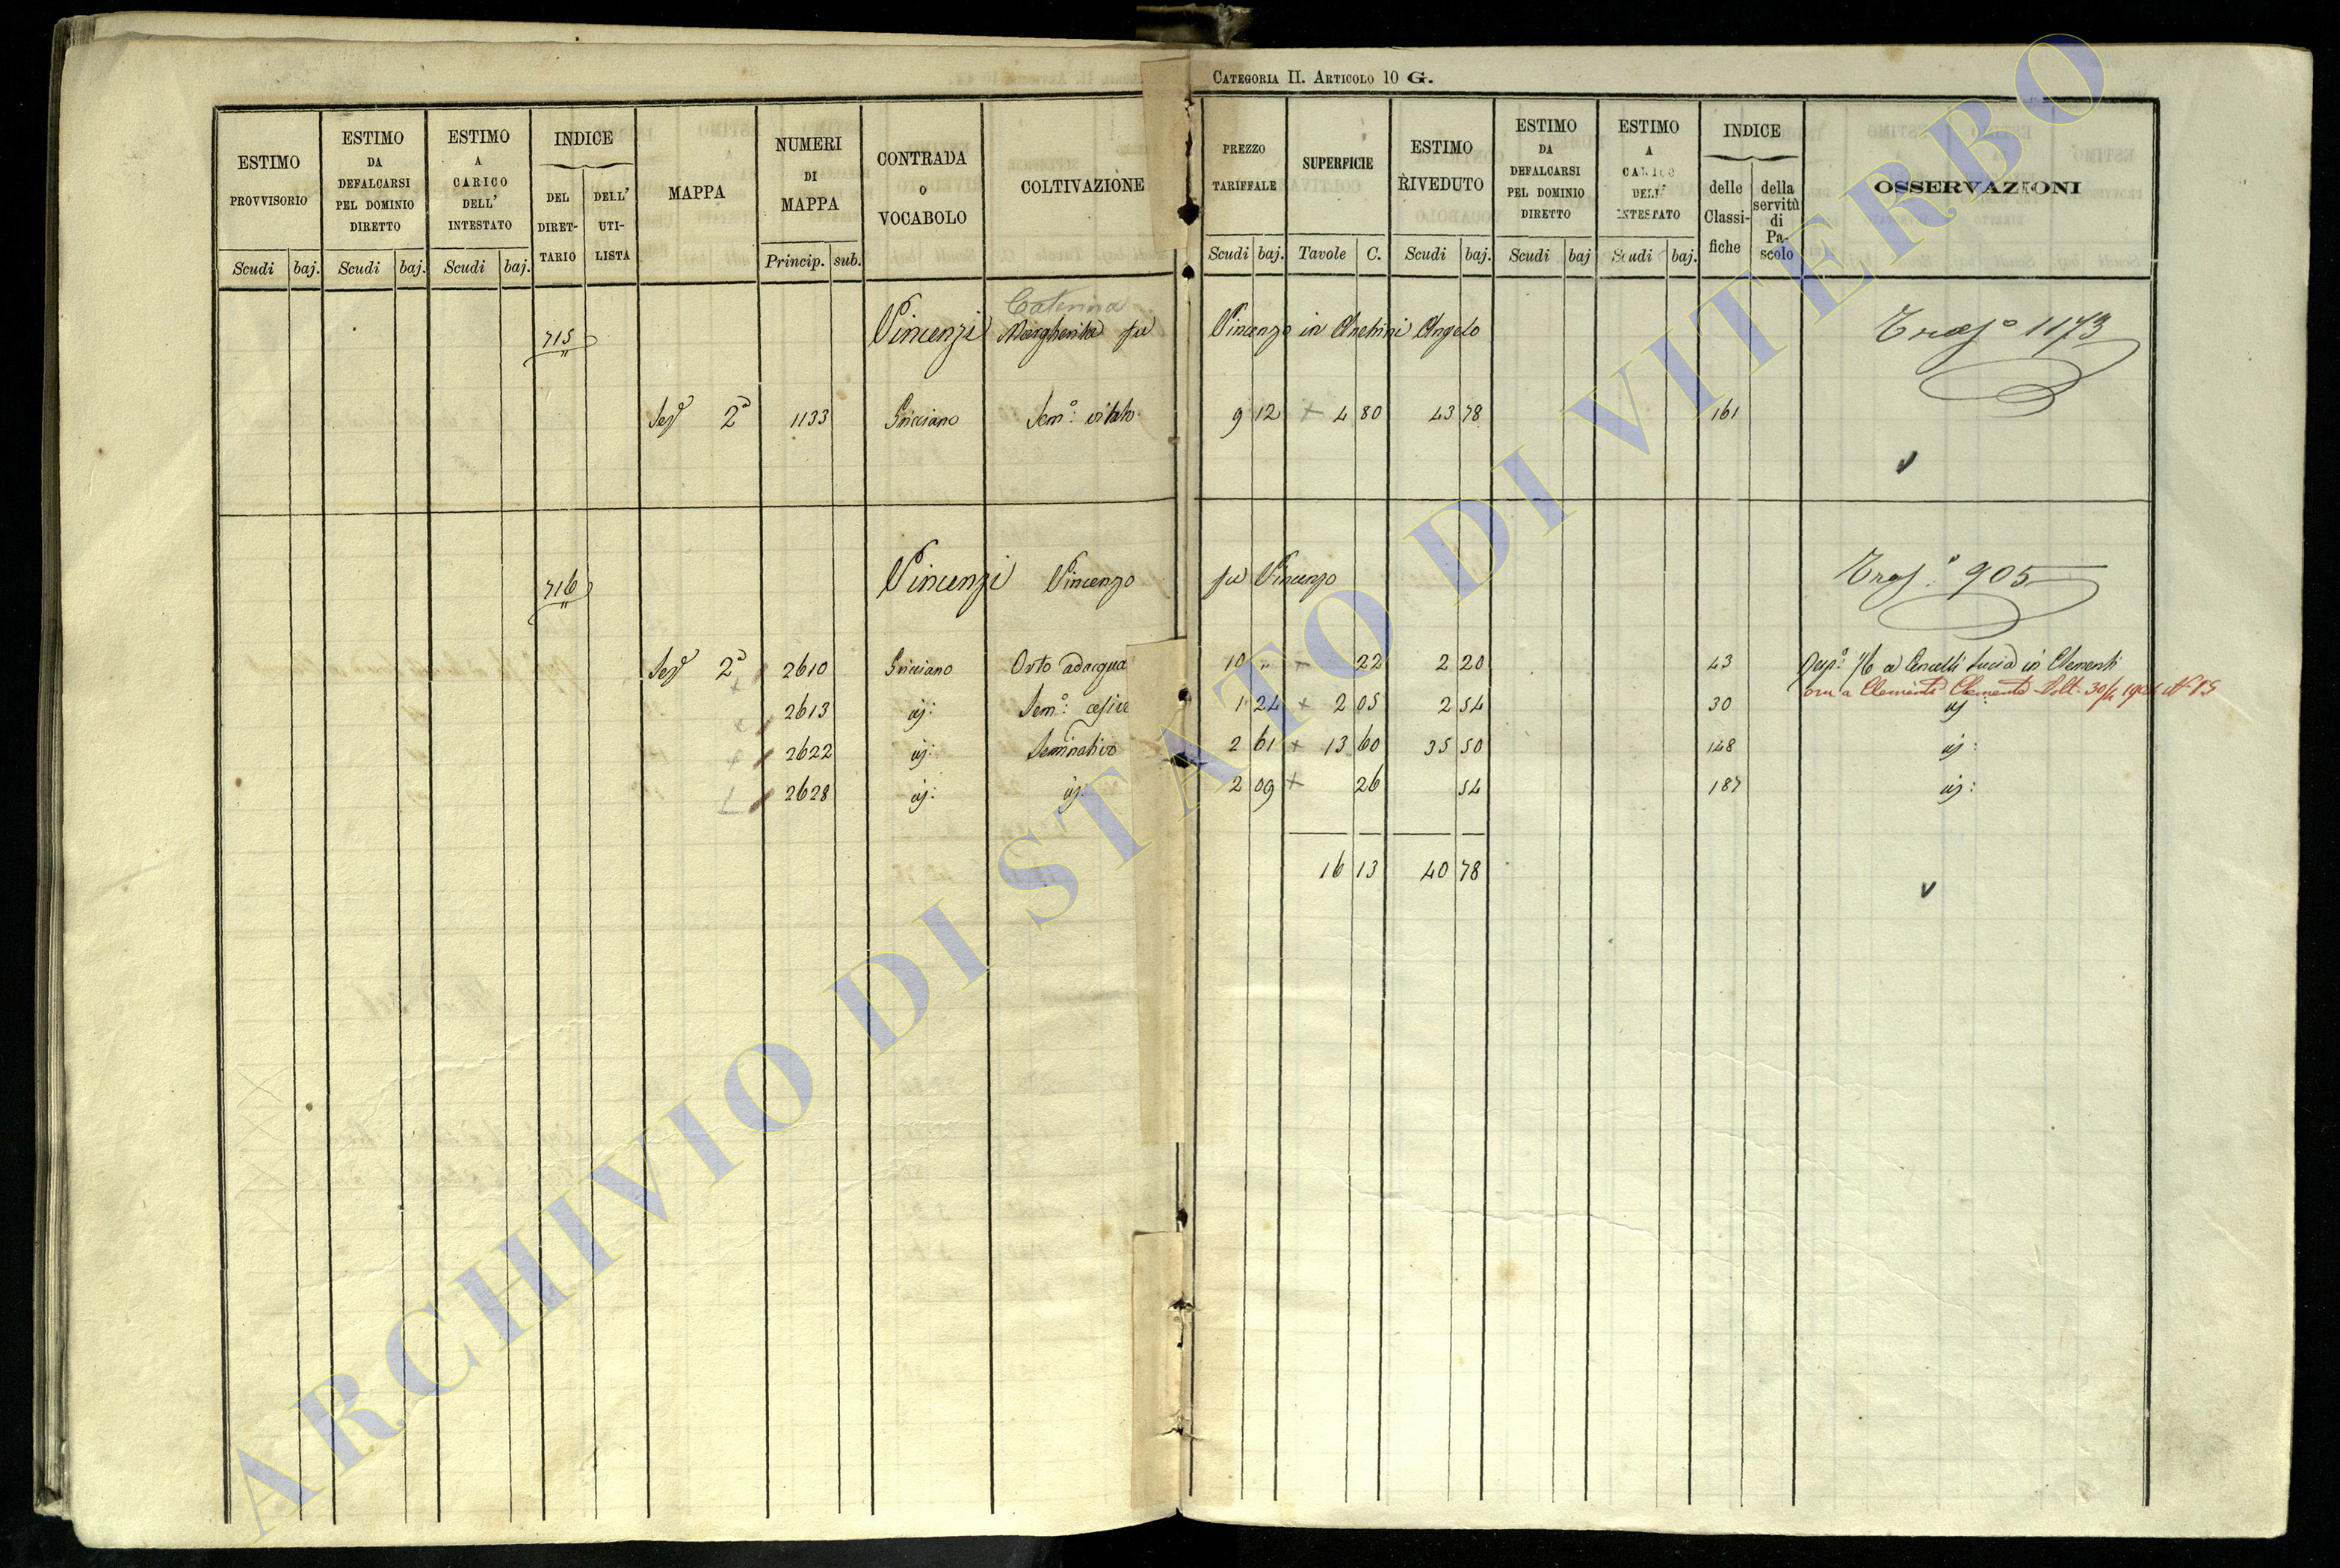 CATEGORIA II. ARTICOLO 10 G.
ESTIMO PROVVISORIO
Scudi baj.
ESTIMO DA DEFALCARSI PEL DOMINIO DIRETTO
Scudi baj.
ESTIMO A CARICO DELL' INTESTATO
Scudi baj.
INDICE
DEL DIRET-TARIO
DELL' UTI-LISTA
MAPPA
NUMERI DI MAPPA
Princip. sub.
CONTRADA O VOCABOLO
COLTIVAZIONE
PREZZO TARIFFALE
Scudi baj.
SUPERFICIE
Tavole C.
ESTIMO RIVEDUTO
Scudi baj.
ESTIMO DA DEFALCARSI PEL DOMINIO DIRETTO
Scudi baj
ESTIMO A CARICO DELL' INTESTATO
Scudi baj.
INDICE
delle Classi-fiche
della servitù di Pa-scolo
OSSERVAZIONI
Caterina
715 Vincenzi Margherita fu Vincenzo in Anebini Angelo Trasp° 1173
Sez° 2ª 1133 Griciano Sem°: vitato 9 12 + 4 80 43 78 161
v
716 Vincenzi Vincenzo fu Vincenzo Trasp° 905
Sez° 2ª 2610 Griciano Orto adacqua 10 " + 22 2 20 43 1/6 a Cencelli Lucia in Clementi
ora a Clemente
2613 id: Sem°: 1 24 + 2 05 2 54 30 id:
2622 id: Seminativo 2 61 + 13 60 35 50 148 id:
2628 id: id: 2 09 + 26 54 187 id:
16 13 40 78
v
ARCHIVIO DI STATO DI VITERBO